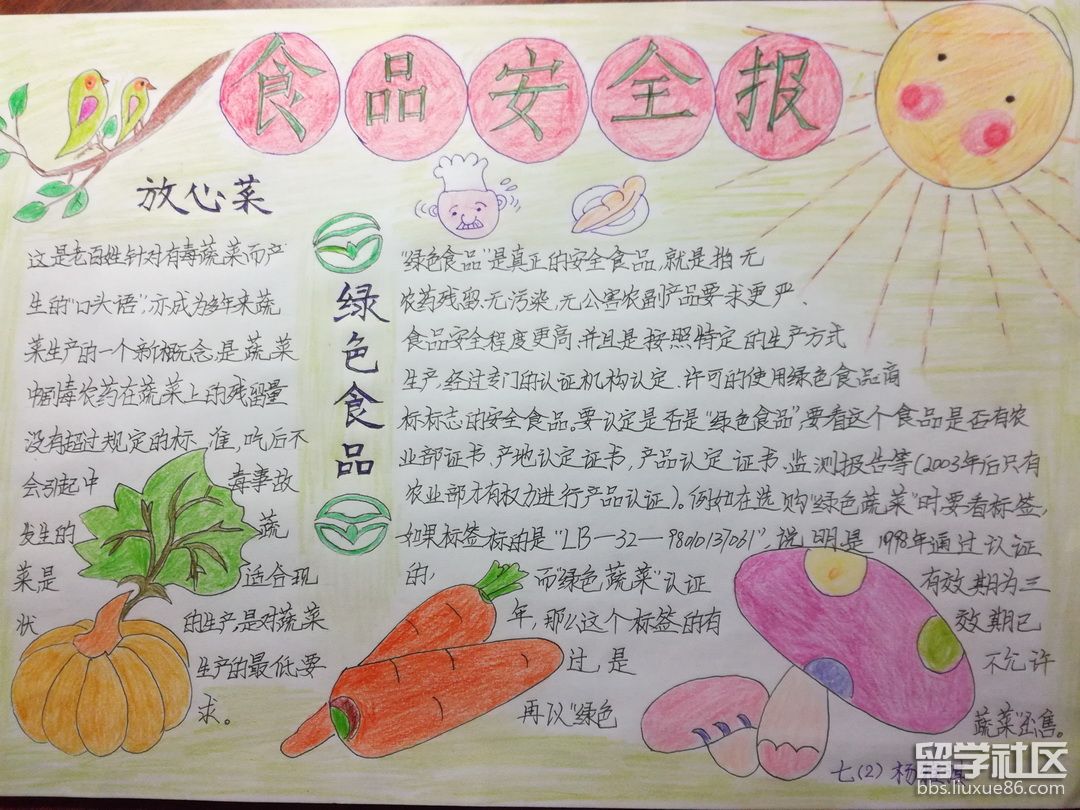 食品安全报
放心菜
这是老百姓针对有毒蔬菜而产
生的"口头语",亦成为多年来蔬
菜生产的一个新概念,是蔬菜
中剧毒农药在蔬菜上的残留量
没有超过规定的标准,吃后不
会引起中毒事故
发生的蔬
菜是适合现
状的生产,是对蔬菜
生产的最低要
求。
绿色食品
"绿色食品"是真正的安全食品,就是指无
农药残留,无污染,无公害农副产品要求更严、
食品安全程度更高,并且是按照特定的生产方式
生产,经过专门的认证机构认定、许可的使用绿色食品商
标标志的安全食品。要认定是否是"绿色食品",要看这个食品是否有农
业部证书,产地认定证书,产品认定证书、监测报告等(2003年后只有
农业部才有权力进行产品认证)。例如在选购"绿色蔬菜"时要看标签,
如果标签标的是"LB—32—9801013/061",说明是1998年通过认证
的,而"绿色蔬菜"认证有效期为三
年,那么这个标签的有效期已
过,是不允许
再以"绿色蔬菜"出售。
七(2)杨
留学社区
bbs.liuxue86.com